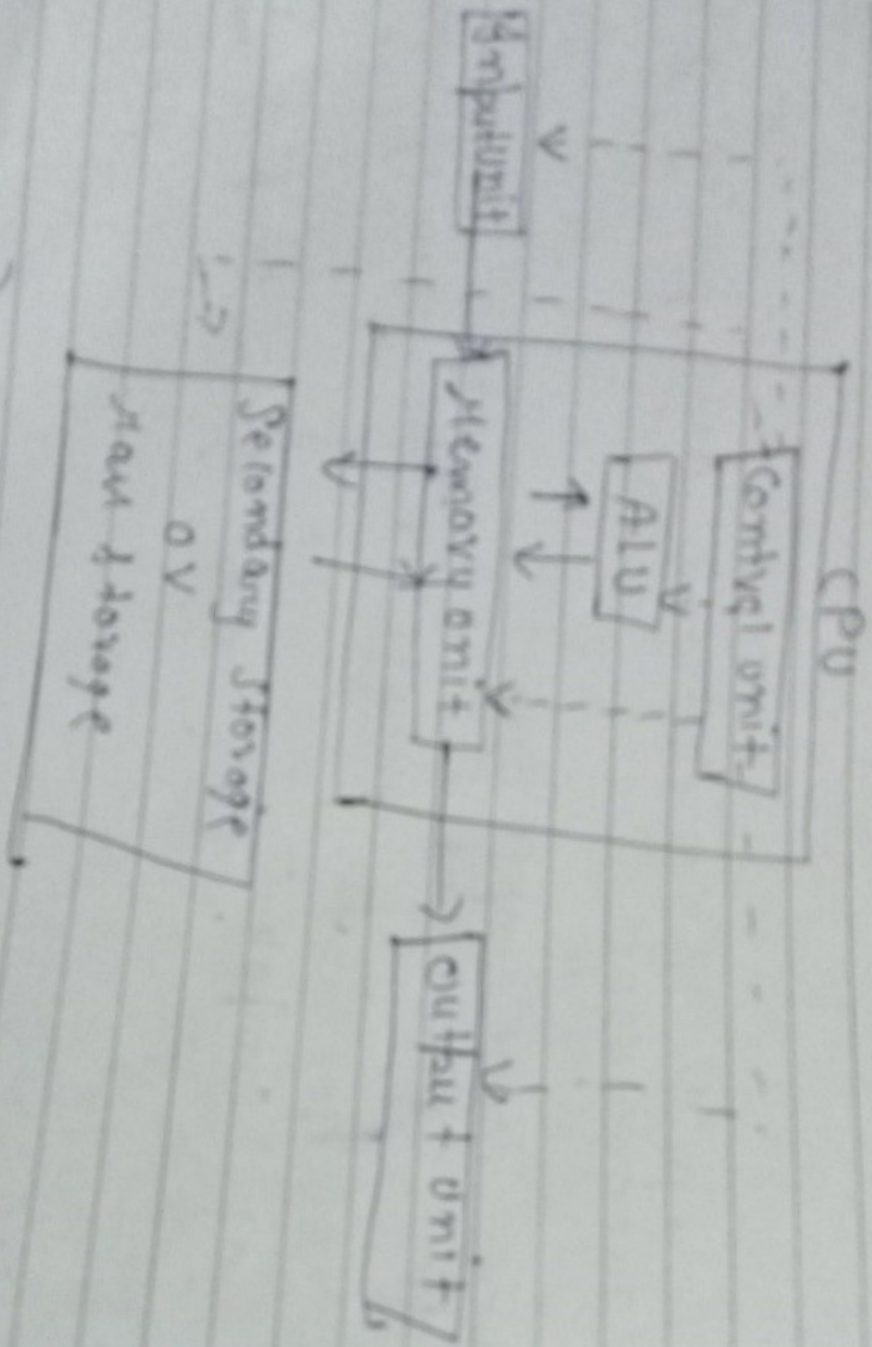 CPU
Control unit
ALU
Input unit
Memory unit
Output unit
Secondary Storage
or
Mass Storage